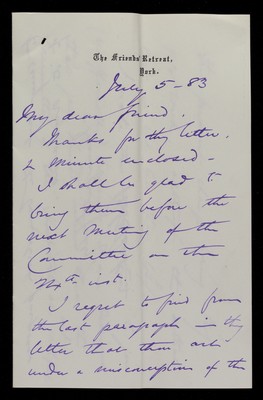 The Friends' Retreat,
York.
July 5 - 83
My dear friend.
Thanks for thy letter.
& minute enclosed -
I shall be glad to
bring them before the
next meeting of the
Committee on the
24th inst.
I regret to find from
the last paragraph in thy
letter that thou art
under a misconception of the